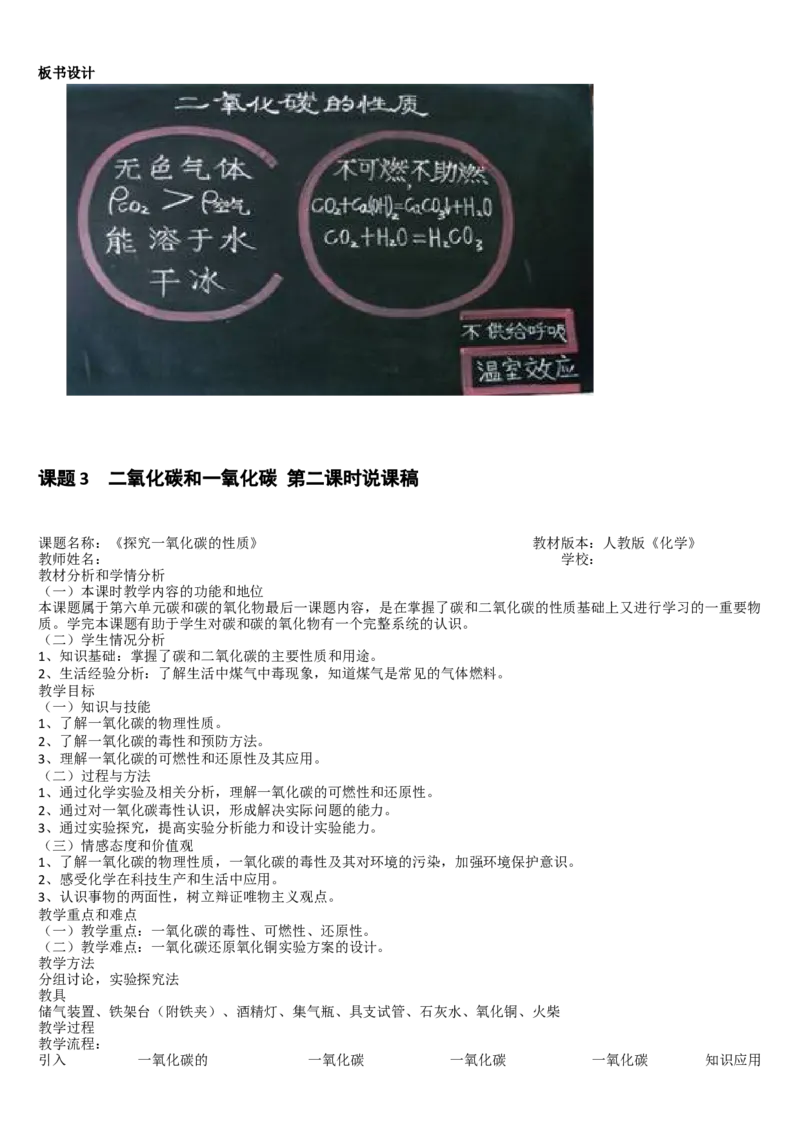 板书设计
二氧化碳的性质
无色气体
ρCO₂ > ρ空气
能溶于水
干冰
不可燃,不助燃
CO₂+Ca(OH)₂=CaCO₃↓+H₂O
CO₂+H₂O=H₂CO₃
不供给呼吸
温室效应
课题 3 二氧化碳和一氧化碳 第二课时说课稿
课题名称：《探究一氧化碳的性质》 教材版本：人教版《化学》
教师姓名： 学校：
教材分析和学情分析
（一）本课时教学内容的功能和地位
本课题属于第六单元碳和碳的氧化物最后一课题内容，是在掌握了碳和二氧化碳的性质基础上又进行学习的一重要物
质。学完本课题有助于学生对碳和碳的氧化物有一个完整系统的认识。
（二）学生情况分析
1、知识基础：掌握了碳和二氧化碳的主要性质和用途。
2、生活经验分析：了解生活中煤气中毒现象，知道煤气是常见的气体燃料。
教学目标
（一）知识与技能
1、了解一氧化碳的物理性质。
2、了解一氧化碳的毒性和预防方法。
3、理解一氧化碳的可燃性和还原性及其应用。
（二）过程与方法
1、通过化学实验及相关分析，理解一氧化碳的可燃性和还原性。
2、通过对一氧化碳毒性认识，形成解决实际问题的能力。
3、通过实验探究，提高实验分析能力和设计实验能力。
（三）情感态度和价值观
1、了解一氧化碳的物理性质，一氧化碳的毒性及其对环境的污染，加强环境保护意识。
2、感受化学在科技生产和生活中应用。
3、认识事物的两面性，树立辩证唯物主义观点。
教学重点和难点
（一）教学重点：一氧化碳的毒性、可燃性、还原性。
（二）教学难点：一氧化碳还原氧化铜实验方案的设计。
教学方法
分组讨论，实验探究法
教具
储气装置、铁架台（附铁夹）、酒精灯、集气瓶、具支试管、石灰水、氧化铜、火柴
教学过程
教学流程：
引入 一氧化碳的 一氧化碳 一氧化碳 一氧化碳 知识应用